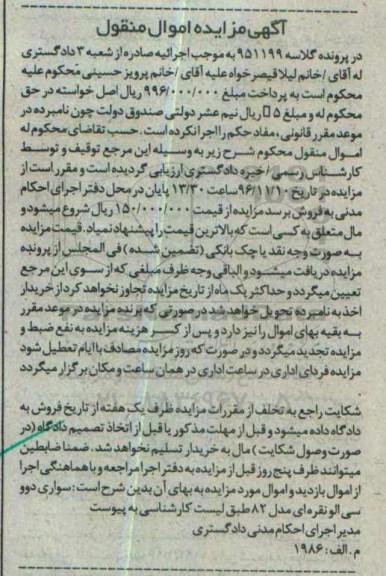 آگهی مزایده اموال منقول
در پرونده کلاسه ۹۵۱۱۹۹ به موجب اجرائیه صادره از شعبه ۳ دادگستری
له آقای /خانم لیلا قیصرخواه علیه آقای /خانم پرویز حسینی محکوم علیه
محکوم است به پرداخت مبلغ ۹۹۶/۰۰۰/۰۰۰ ریال اصل خواسته در حق
محکوم له و مبلغ ۵ ریال نیم عشر دولتی صندوق دولت چون نامبرده در
موعد مقرر قانونی ، مفاد حکم را اجرا نکرده است . حسب تقاضای محکوم له
اموال منقول محکوم شرح زیر به وسیله این مرجع توقیف و توسط
کارشناس رسمی /خبره دادگستری ارزیابی گردیده است و مقرر است از
مزایده در تاریخ ۹۶/۱۱/۱۰ ساعت ۱۳/۳۰ پایان در محل دفتر اجرای احکام
مدنی به فروش برسد مزایده از قیمت ۱۵۰/۰۰۰/۰۰۰ ریال شروع میشود و
مال متعلق به کسی است که بالاترین قیمت را پیشنهاد نمیاد. قیمت مزایده
به صورت وجه نقد یا چک بانکی (تضمین شده ) فی المجلس از برنده
مزایده دریافت میشود و الباقی وجه ظرف مبلغی که از سوی این مرجع
تعیین میگردد و حداکثر یک ماه از تاریخ مزایده تجاوز نخواهد کرد از خریدار
اخذ به نامبرده تحویل خواهد شد در صورتی که برنده مزایده در موعد مقرر
به بقیه بهای اموال را نیز دارد و پس از کسر هزینه مزایده به نفع ضبط و
مزایده تجدید میگردد و در صورت که روز مزایده مصادف با ایام تعطیل شود
مزایده فردای اداری در ساعت اداری در همان ساعت و مکان برگزار میگردد
شکایت راجع به تخلف از مقررات مزایده ظرف یک هفته از تاریخ فروش به
دادگاه داده میشود و قبل از مهلت مذکور یا قبل از اتخاذ تصمیم دادگاه (در
صورت وصول شکایت ) مال به خریدار تسلیم نخواهد شد. ضمنا ضابطین
میتوانند ظرف پنج روز قبل از مزایده به دفتر اجرا مراجعه و با هماهنگی اجرا
از اموال بازدید و اموال مورد مزایده به بهای آن بدین شرح است : سواری دوو
سی الو نقره ای مدل ۸۲ طبق لیست کارشناسی به پیوست
مدیر اجرای احکام مدنی دادگستری
م .الف : ۱۹۸۶